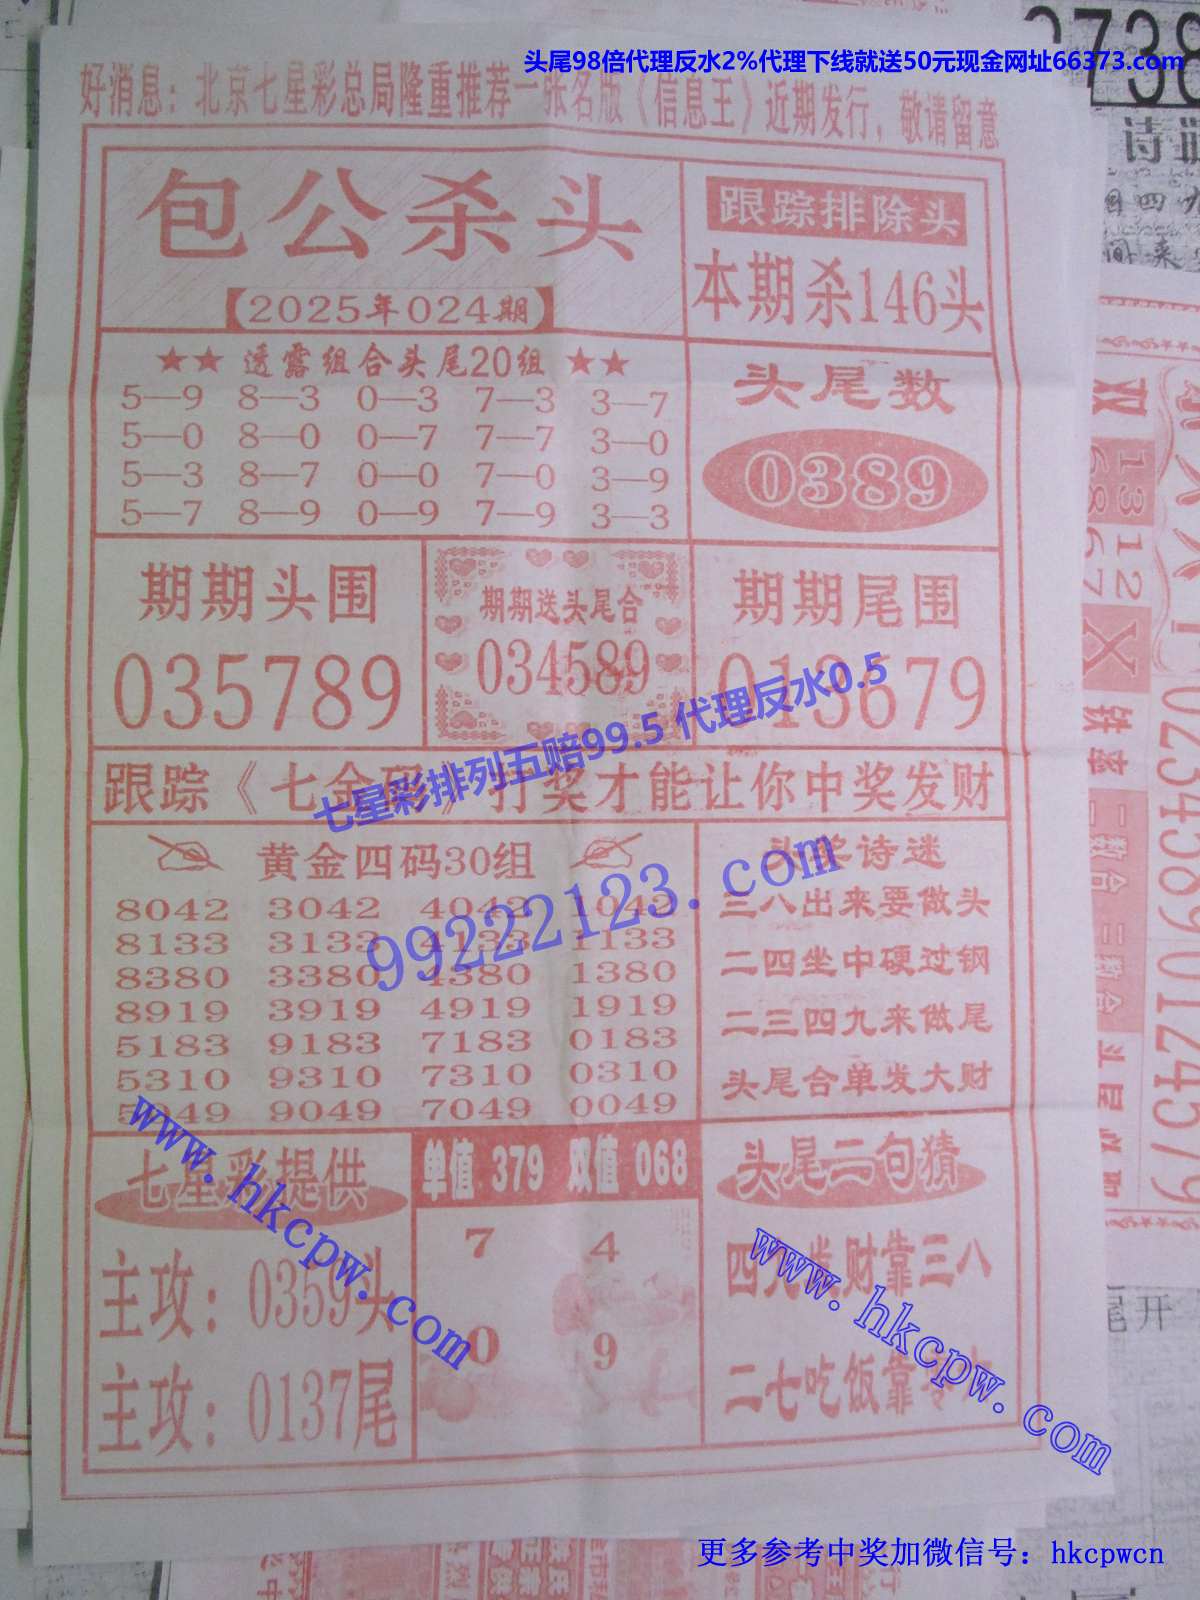 头尾98倍代理反水2%代理下线就送50元现金网址66373.com
好消息：北京七星彩总局隆重推荐一张名版《信息王》近期发行，敬请留意
包公杀头
【2025年024期】
跟踪排除头
本期杀146头
★★ 透露组合头尾20组 ★★
5—9 8—3 0—3 7—3 3—7
5—0 8—0 0—7 7—7 3—0
5—3 8—7 0—0 7—0 3—9
5—7 8—9 0—9 7—9 3—3
头尾数
0389
期期头围
035789
期期送头尾合
034589
期期尾围
013679
七星彩排列五赔99.5 代理反水0.5
跟踪《七金码》打奖才能让你中奖发财
黄金四码30组
8042 3042 4042 1042
8133 3133 4133 1133
8380 3380 4380 1380
8919 3919 4919 1919
5183 9183 7183 0183
5310 9310 7310 0310
5049 9049 7049 0049
99222123.com
头奖诗迷
三八出来要做头
二四坐中硬过钢
二三四九来做尾
头尾合单发大财
七星彩提供
主攻：0359头
主攻：0137尾
www.hkcpw.com
单值 379 双值 068
7 4
0 9
头尾二句猜
四九发财靠三八
二七吃饭靠
www.hkcpw.com
更多参考中奖加微信号：hkcpwcn
双
1312
6867
X
02345890124579
二数合二数合
尾开